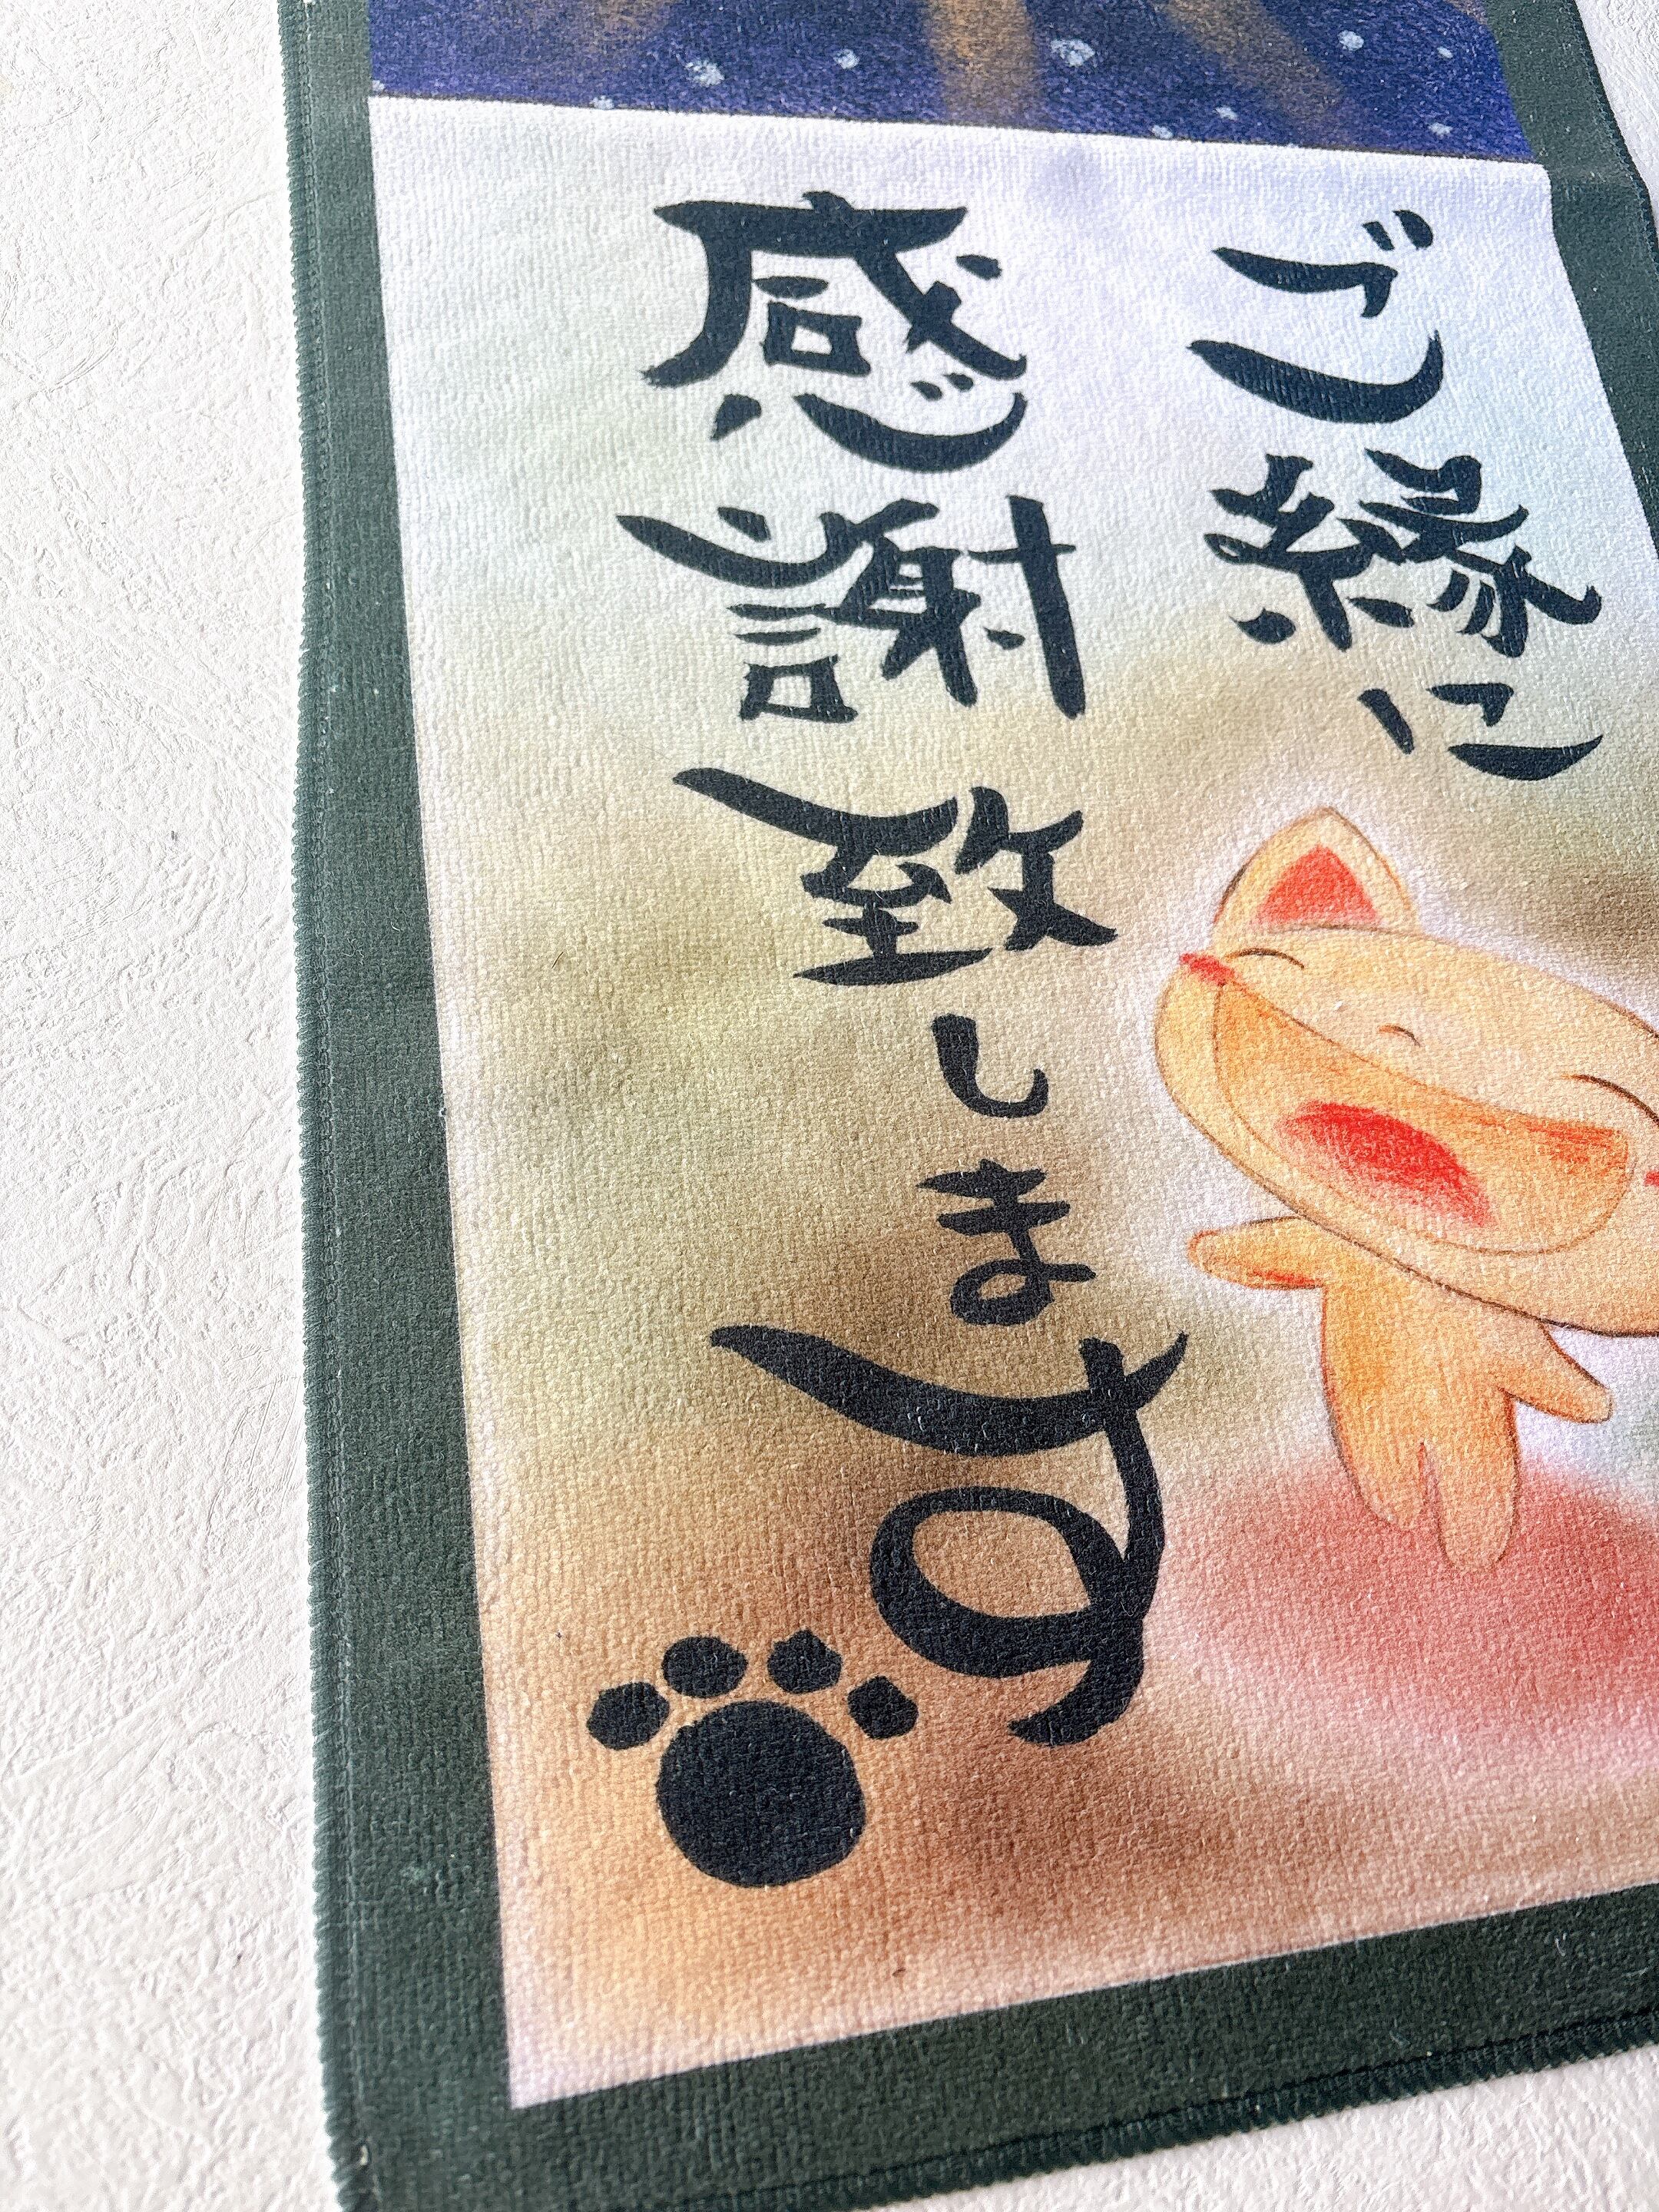 ご縁に
感謝致します